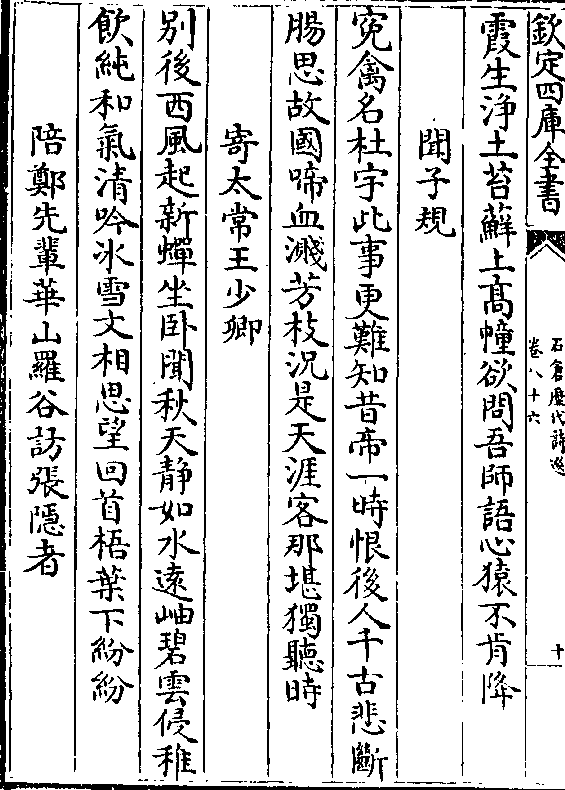 欽定四庫全書
石倉歷代詩選
卷八十六
十
霞生淨土苔蘚上高幢欲問吾師語心猿不肯降
聞子規
寃禽名杜宇此事更難知昔帝一時恨後人千古悲斷
腸思故國啼血濺芳枝況是天涯客那堪獨聽時
寄太常王少卿
別後西風起新蟬坐卧聞秋天靜如水遠岫碧雲侵稚
飲純和氣清吟冰雪文相思望回首梧葉下紛紛
陪鄭先輩華山羅谷訪張隱者